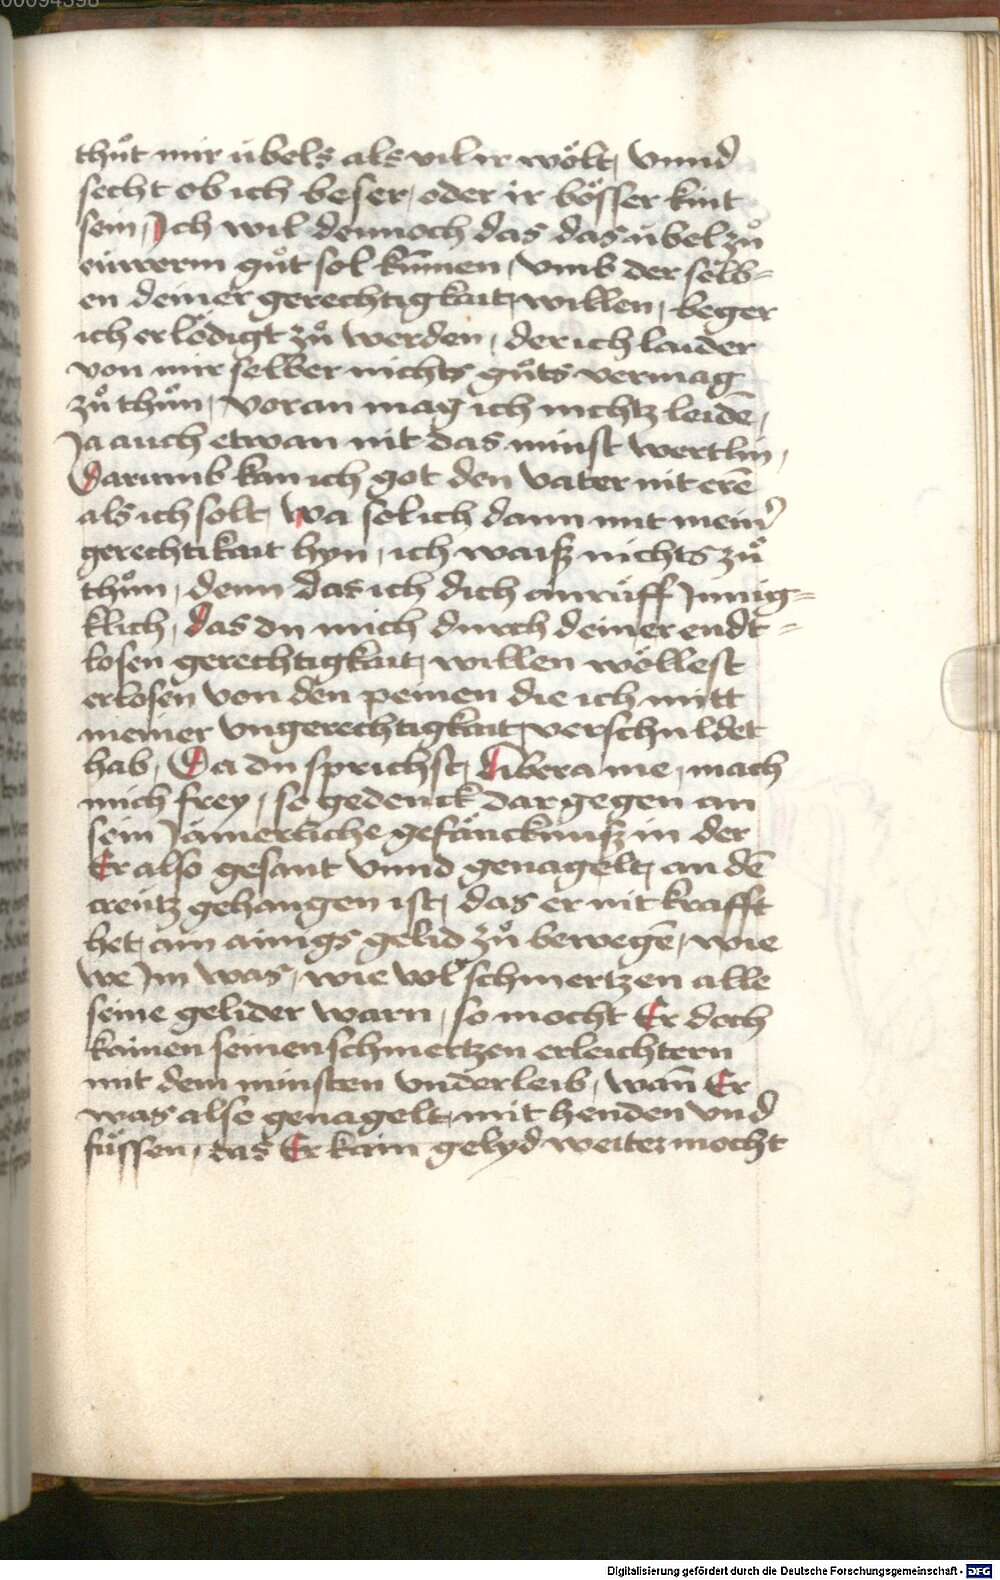 thůt mir übels als vil ir wölt, vnnd
secht ob ich beser, oder ir bösser kint
sein, Ich wil dennoch das das übel zů
eüwerm gůt sol kūmen, vmb der selb=
en deiner gerechtigkait, willen, beger
ich erlödigt zů werden, der ich laider
von mir selber nichts gůts vermag
zů thůn, voran mag ich nichtz leidē,
Ja auch etwan nit das minst wertlin,
Darumb kan ich got den vater nit erē
als ich solt, wa sol ich dann mit meinr
gerechtikait hyn, ich waiß nichts zů
thůn, denn das ich dich anrüff Jnnig=
klich, das du mich durch deiner endt=
losen gerechtigkait, willen wöllest
erlosen von den peinen die ich mitt
meiner vngerechtigkait, verschuldet
hab, Da du sprichst, Libera me, mach
mich frey, so gedenck dargegen an
sein Jämerliche gefänncknuß in der
Er also gesant vnnd genagelt, an dē
creütz gehangen ist, das er nit krafft
het, ain ainigs gelid zů bewegē, wie
we Jm was, wie vol schmertzen alle
seine gelider warn, so mocht Er doch
kainen seinen schmertzen erleichtern
mit dem minsten vnderleib, wañ Er
was also genagelt, mit henden vnd
füssen, das Er kain gelyd weiter mocht
Digitalisierung gefördert durch die Deutsche Forschungsgemeinschaft - DFG